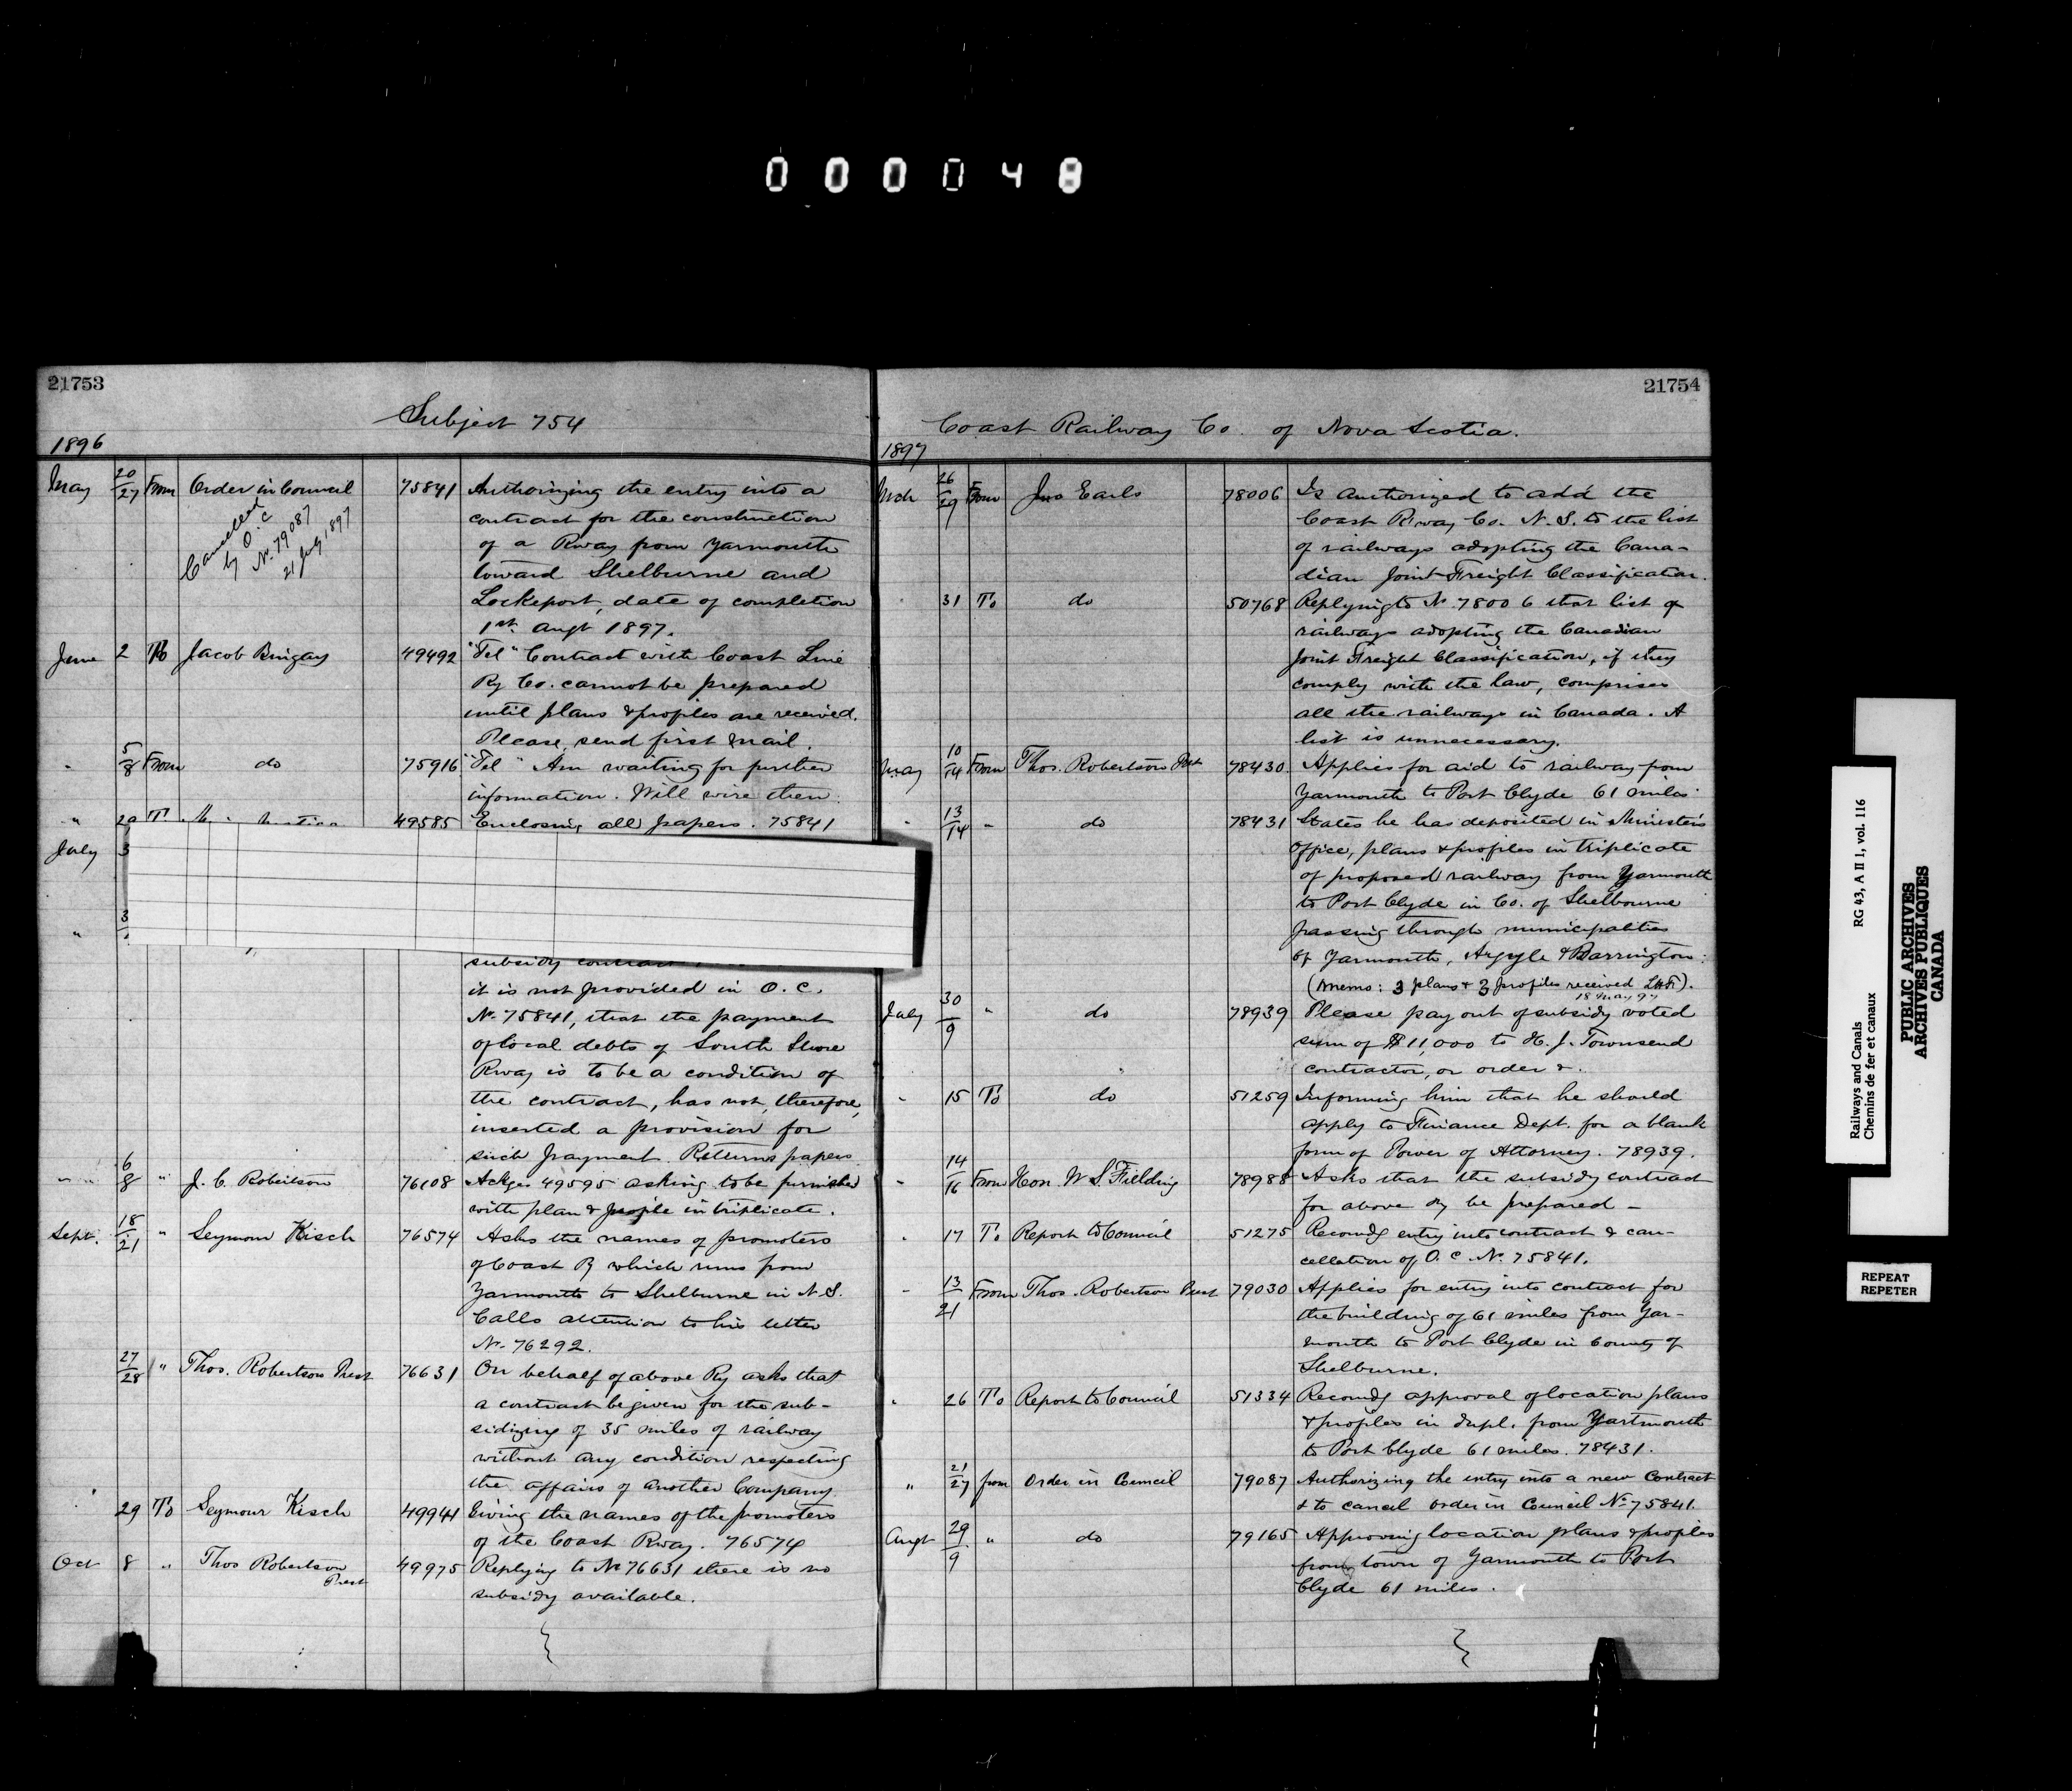 000048
21753
Subject 754
1896
May 20/27 From Order in Council 75841 Authorizing the entry into a
Cancelled
by O.C
No. 79087
21 July 1897
contract for the construction
of a Rway from Yarmouth
toward Shelburne and
Lockeport, date of completion
1st. Augt 1897.
June 2 To Jacob Bingay 49492 "Tel" Contract with Coast Line
Ry Co. cannot be prepared
until plans & profiles are received.
Please send first mail.
" 5/8 From do 75916 "Tel" Am waiting for further
information. Will wire then.
" 49585 Enclosing all papers. 75841
July 3
" 3
subsidy contract
it is not provided in O.C.
No. 75841, that the payment
of local debts of South Shore
Rway is to be a condition of
the contract, has not, therefore,
inserted a provision for
such payment. Returns papers
" " 6/8 " J. C. Robertson 76108 Ackges 49595 asking to be furnished
with plan & profile in triplicate.
Sept. 18/21 " Seymour Kisch 76574 Asks the names of promoters
of Coast Ry which runs from
Yarmouth to Shelburne in N.S.
Calls attention to his letter
No. 76292.
27/28 " Thos. Robertson Prest 76631 On behalf of above Ry asks that
a contract be given for the sub-
sidizing of 35 miles of railway
without any condition respecting
the affairs of another Company
" 29 To Seymour Kisch 49941 Giving the names of the promoters
of the Coast Rway. 76574
Oct 8 " Thos Robertson Prest 49975 Replying to No 76631 there is no
subsidy available.
21754
Coast Railway Co. of Nova Scotia.
1897
Mch 26/29 From Jno Earls 78006 Is authorized to add the
Coast Rway Co. N.S. to the list
of railways adopting the Cana-
dian Joint Freight Classification.
31 To do 50768 Replying to No 78006 that list of
railways adopting the Canadian
Joint Freight Classification, if they
comply with the law, comprises
all the railways in Canada. A
list is unnecessary.
May 10/14 From Thos. Robertson Prest 78430 Applies for aid to railway from
Yarmouth to Port Clyde 61 miles
" 13/14 " do 78431 States he has deposited in Minister's
Office, plans & profiles in triplicate
of proposed railway from Yarmouth
to Port Clyde in Co. of Shelbourne
passing through municipalities
of Yarmouth, Argyle & Barrington.
(Memo: 3 plans & 3 profiles received
18 May 97
July 30/9 " do 78939 Please pay out of subsidy voted
sum of $11,000 to H. J. Townsend
contractor, or order &.
" 15 To do 51259 Informing him that he should
apply to Finance Dept. for a blank
form of Power of Attorney. 78939.
" 14/16 From Hon W. S. Fielding 78988 Asks that the subsidy contract
for above Ry be prepared -
" 17 To Report to Council 51275 Recomdg entry into contract & can-
cellation of O.C. No. 75841.
" 13/21 From Thos. Robertson Prest 79030 Applies for entry into contract for
the building of 61 miles from Yar-
mouth to Port Clyde in County of
Shelburne.
" 26 To Report to Council 51334 Recomdg approval of location plans
& profiles in dupl. from Yartmouth
to Port Clyde 61 miles. 78431.
" 21/27 from Order in Council 79087 Authorizing the entry into a new contract
& to cancel order in Council No 75841.
Augt 29/9 " do 79165 Approving location plans & profiles
from town of Yarmouth to Port
Clyde 61 miles.
Railways and Canals RG 43, A II 1, vol. 116
Chemins de fer et canaux
PUBLIC ARCHIVES
ARCHIVES PUBLIQUES
CANADA
REPEAT
REPETER